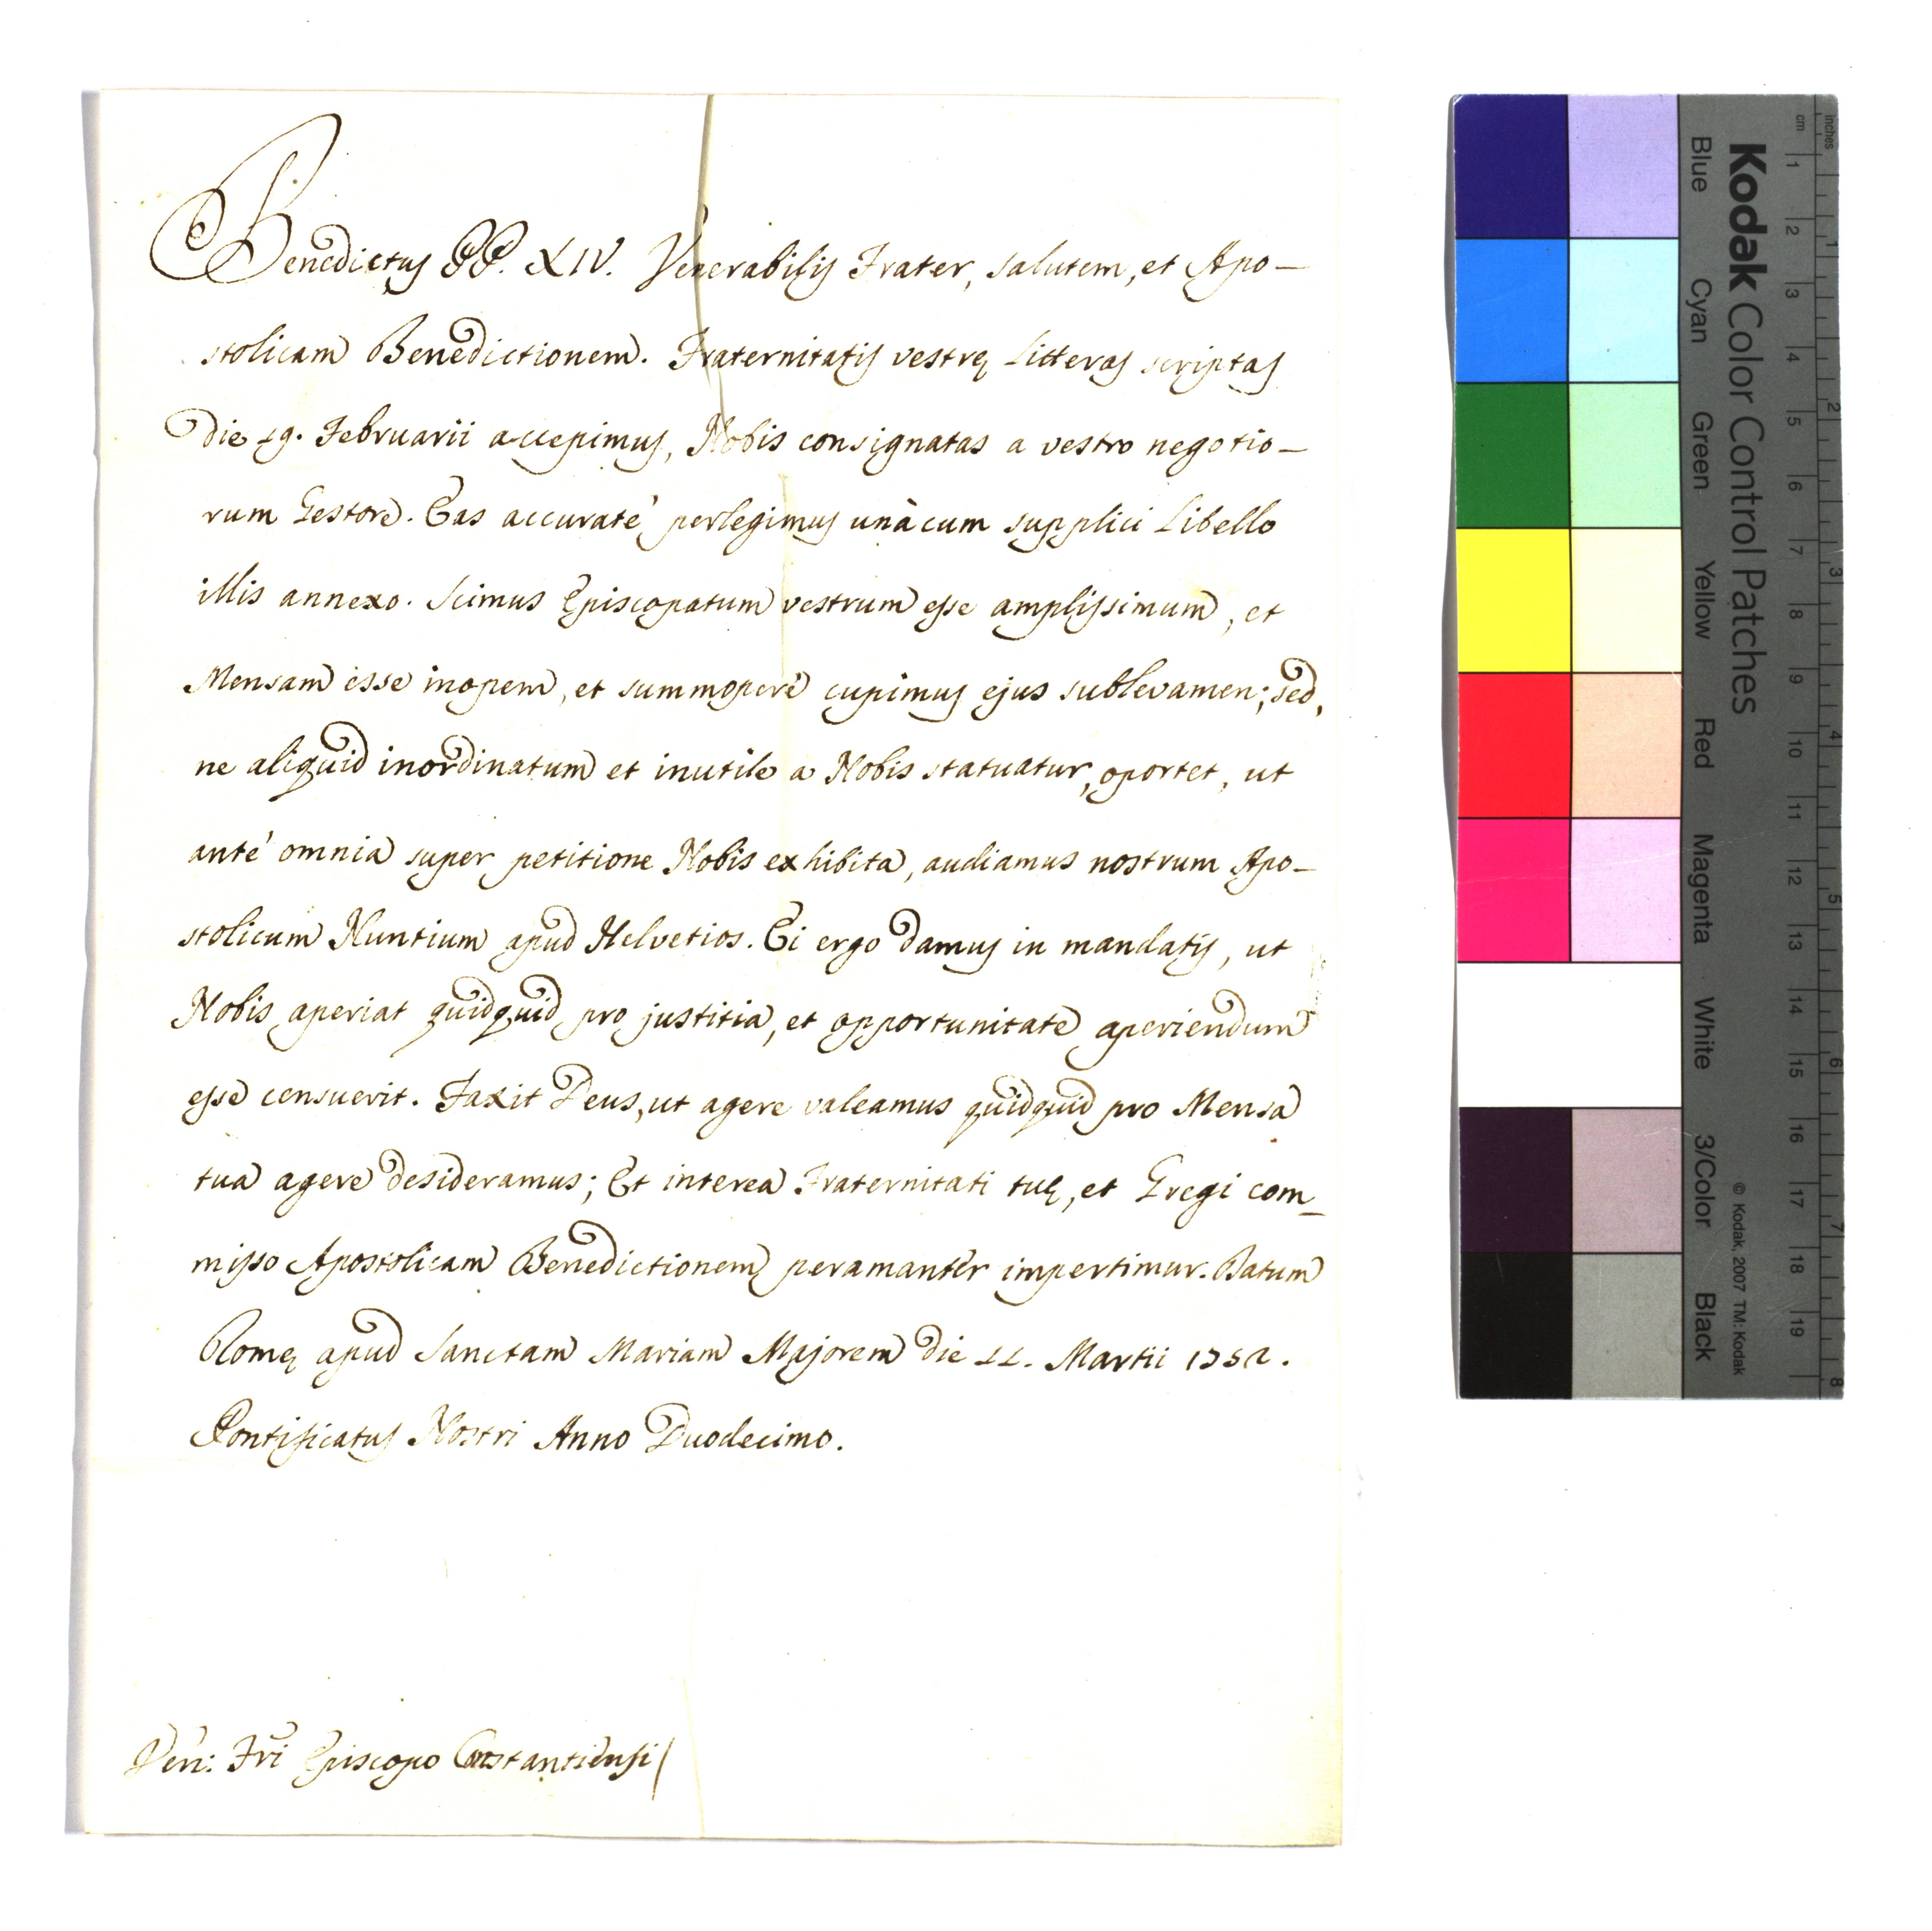 Benedictus PP. XIV. Venerabilis Frater, salutem, et Apo-
stolicam Benedictionem. Fraternitatis vestrę Litteras scriptas
die 19. Februarii accepimus, Nobis consignatas a vestro negotio-
rum Gestore. Eas accuraté perlegimus unàcum supplici Libello
illis annexo. Scimus Episcopatum vestrum esse amplissimum, et
Mensam esse inopem, et summoperè cupimus ejus sublevamen; sed,
ne aliquid inordinatum et inutile a Nobis statuatur, oportet, ut
anté omnia super petitione Nobis exhibita, audiamus nostrum Apo-
stolicum Nuntium apud Helvetios. Ei ergo damus in mandatis, ut
Nobis aperiat quidquid pro justitia, et opportunitate aperiendum
esse censuerit. Faxit Deus, ut agere valeamus quidquid pro Mensa
tua agere desideramus; Et interea Fraternitati tuę, et Gregi com-
misso Apostolicam Benedictionem peramantèr impertimur. Datum
Romę apud Sanctam Mariam Majorem die 11. Martii 1752.
Pontificatus Nostri Anno Duodecimo.
Ven: Fri Episcopo Constantiensi
Kodak Color Control Patches
Blue Cyan Green Yellow Red Magenta White 3/Color Black
© Kodak, 2007 TM: Kodak
cm 1 2 3 4 5 6 7 8 9 10 11 12 13 14 15 16 17 18 19
inches 1 2 3 4 5 6 7 8